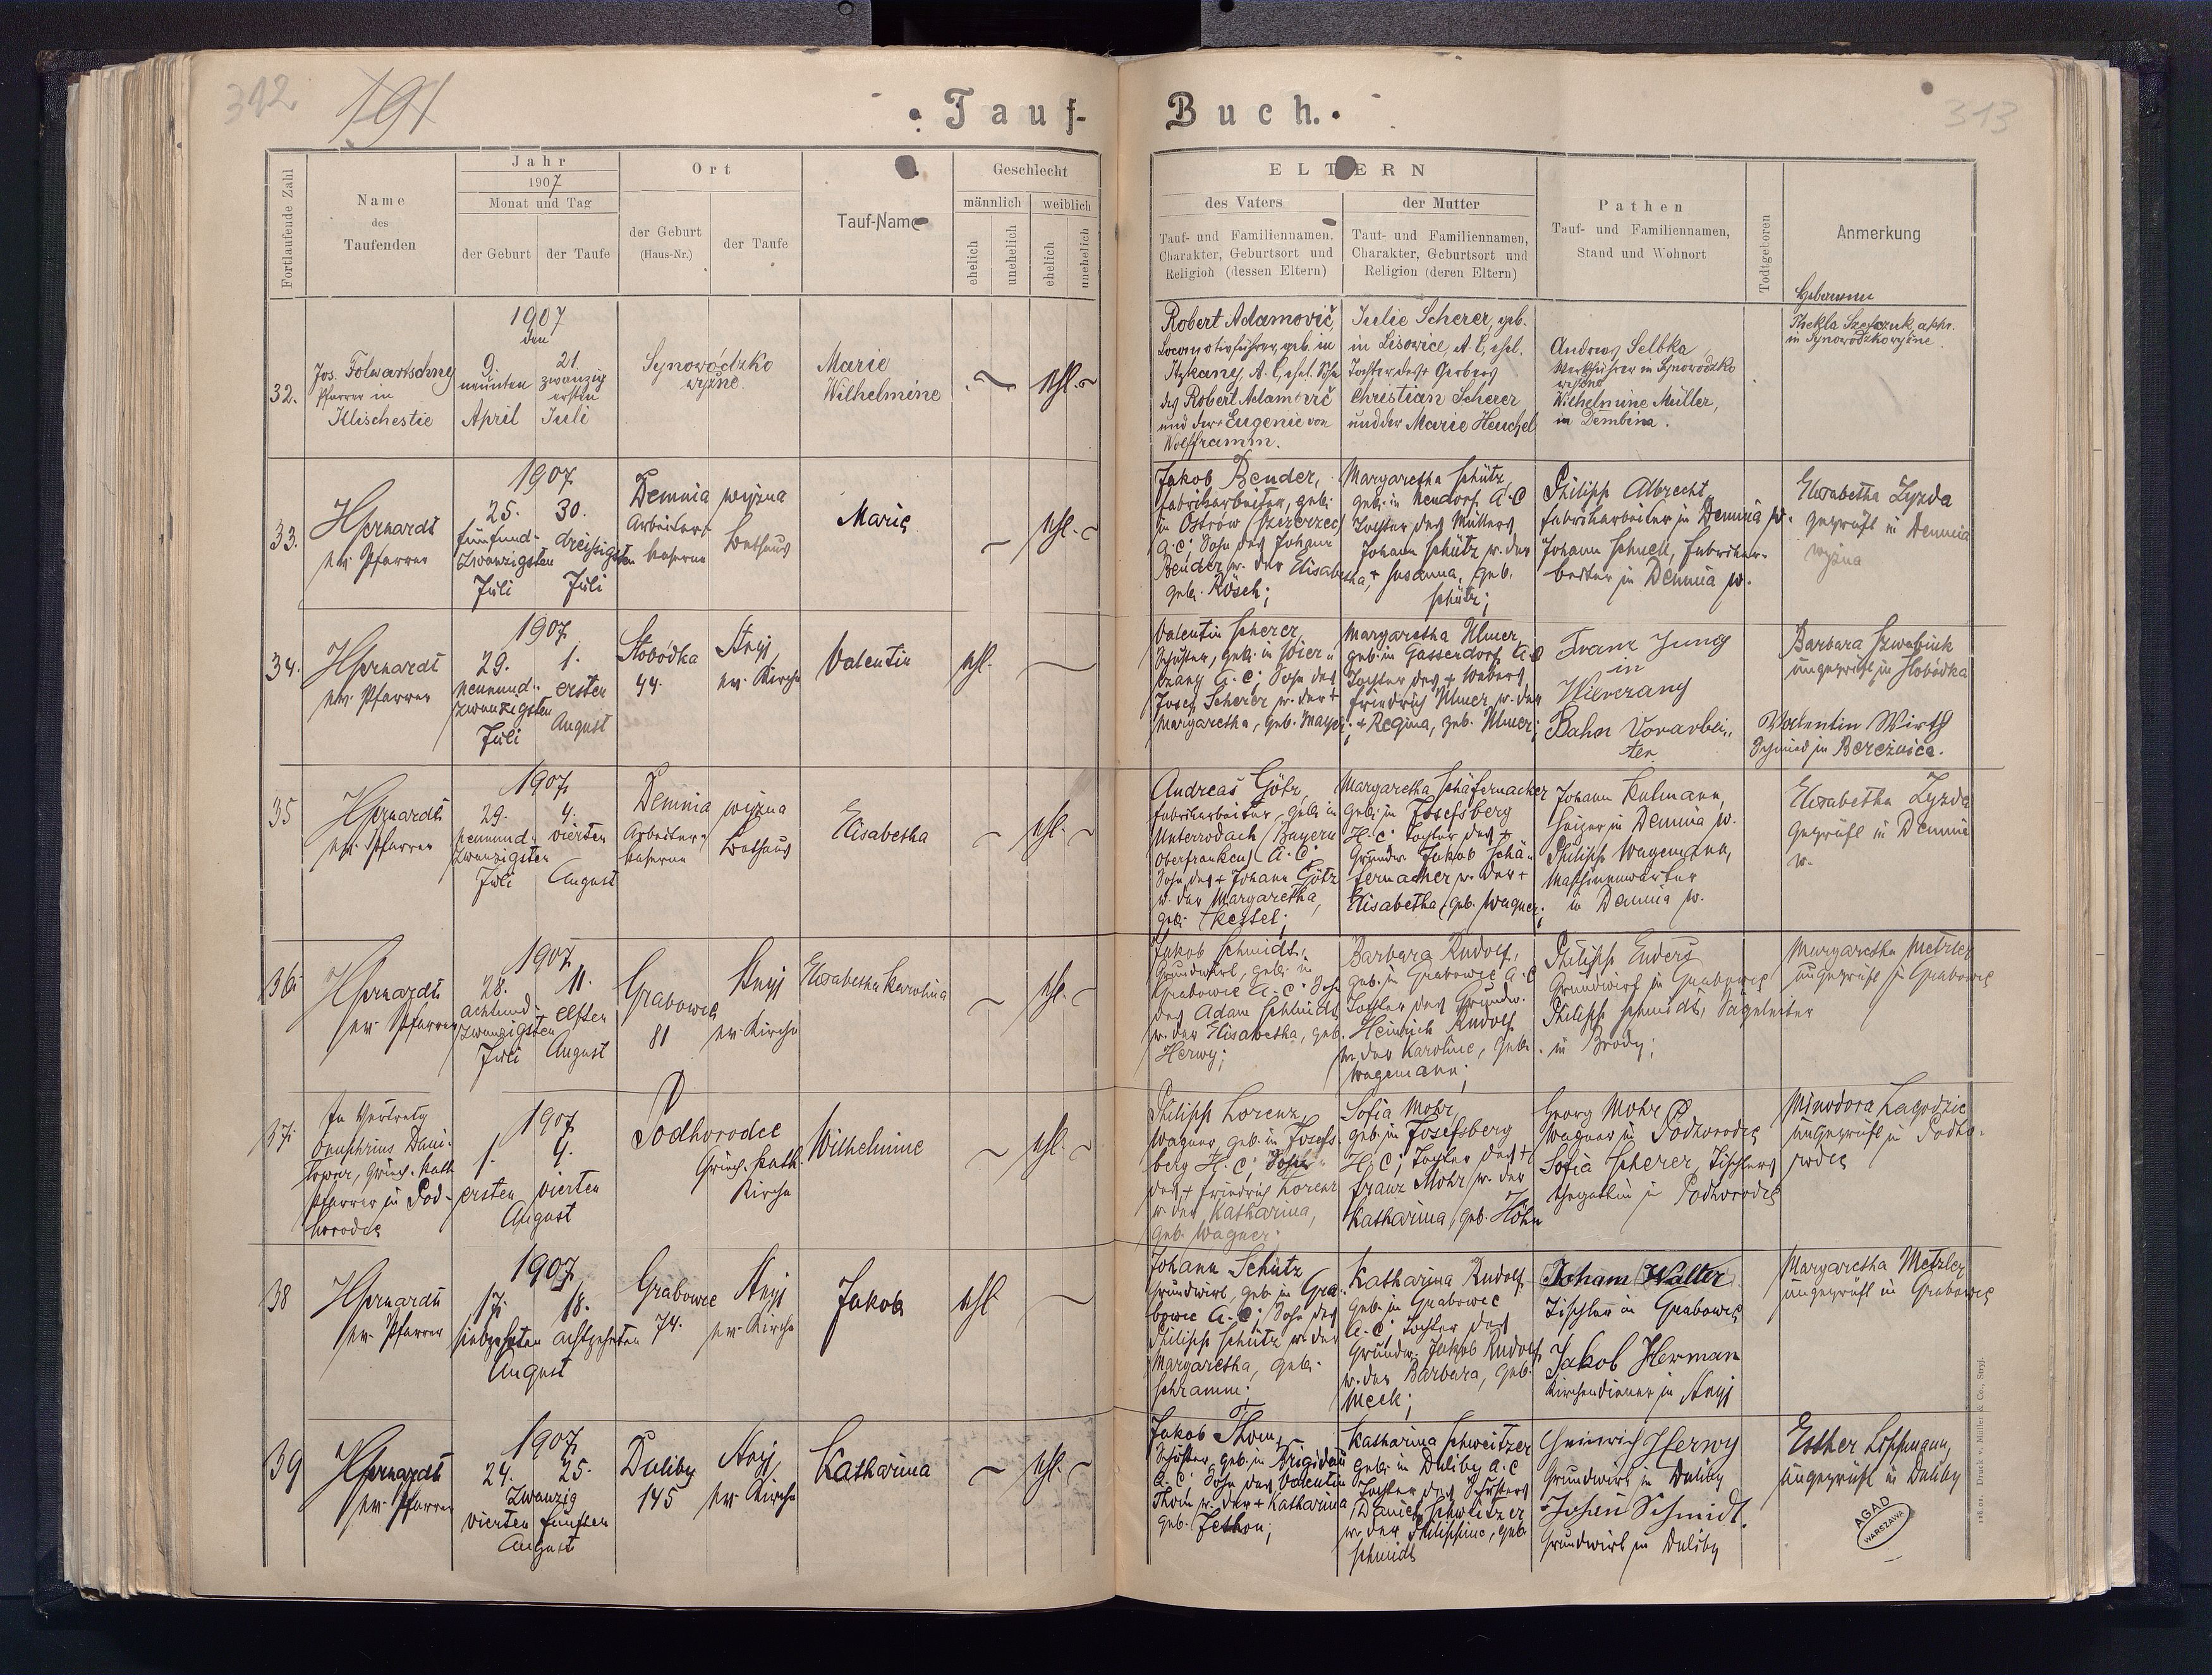 312
191
Tauf-
Buch.
313
Fortlaufende Zahl
Name
des
Taufenden
Jahr
1907
Monat und Tag
der Geburt
der Taufe
Ort
der Geburt
(Haus-Nr.)
der Taufe
Tauf-Name
Geschlecht
männlich
weiblich
ehelich
unehelich
ehelich
unehelich
ELTERN
des Vaters
Tauf- und Familiennamen,
Charakter, Geburtsort und
Religion (dessen Eltern)
der Mutter
Tauf- und Familiennamen,
Charakter, Geburtsort und
Religion (deren Eltern)
Pathen
Tauf- und Familiennamen,
Stand und Wohnort
Todtgeboren
Anmerkung
Hebamme
32.
Jos. Folwartschny
Pfarrer in
Illischestie
1907
den
9.
neunten
April
21.
zwanzig
ersten
Juli
Synowódzko
wyżne.
Marie
Wilhelmine
ehl.
Robert Adamovič
Locomotivführer, geb. in
Itzkany, A. C, ehel. Sohn
des Robert Adamovič
und der + Eugenie von
Wolfframm.
Julie Scherer, geb.
in Lisowice, A. C, ehel.
Tochter des + Gerbers
Christian Scherer
und der Marie Heuchel
Andreas Selbka,
Werkführer in Synowódzko
wyżne
Wilhelmine Müller,
in Dembina.
Thekla
in Synowódzko wyżne.
33.
ev. Pfarrer
1907
25.
fünfund-
zwanzigsten
Juli
30.
dreißigsten
Juli
Demnia wyżna
Arbeiter-
kaserne
Bethaus
Marie
ehl.
Jakob Bender,
Fabriksarbeiter, geb.
in Ostrów (Szczerzec)
A. C; Sohn des Johann
Bender u. der Elisabetha,
geb. Rösch;
Margaretha Schütz
geb. in Neudorf, A. C
Tochter des Müllers
Johann Schütz u. der
+ Susanna, geb.
Schütz;
Philipp Albrecht,
Fabriksarbeiter in Demnia w.
Johann Schnell, Fabriksar-
beiter in Demnia w.
Elisabetha Zyzda
geprüft in Demnia
wyżna
34.
ev. Pfarrer
1907
29.
neunund-
zwanzigsten
Juli
1.
ersten
August
Słobódka
44.
Stryj,
ev. Kirche
Valentin
ehl.
Valentin Scherer,
Schuster, geb. in Wier-
czany A. C; Sohn des
Josef Scherer u. der +
Margaretha, geb. Mayer;
Margaretha Ulmer,
geb. in Gassendorf, A. C
Tochter des + Webers
Friedrich Ulmer, u. der
+ Regina, geb. Ulmer;
Franz Jung
in
Wierczany
Bahn Vorarbei-
ter
Barbara Szwabiuk
ungeprüft in Słobódka
Valentin Wirth
Schmied in Bereźnica.
35
ev. Pfarrer
1907
29.
neunund-
zwanzigsten
Juli
4.
vierten
August
Demnia wyżna
Arbeiter-
kaserne
Bethaus
Elisabetha
ehl.
Andreas Götz,
Fabriksarbeiter, geb. in
Unterrodach (Bayern
Oberfranken) A. C.
Sohn des + Johann Götz
u. der Margaretha,
geb. Kessel;
Margaretha Schäfernacker
geb. in Josefsberg
H. C; Tochter des +
Grundw. Jakob Schä-
fernacker u. der +
Elisabetha, geb. Wagner;
Johann Kulmann,
Heizer in Demnia w.
Philipp Wagemann,
Maschinenwärter
in Demnia w.
Elisabetha Zyzda
geprüft in Demnia
w.
36
ev. Pfarrer
1907
28.
achtund-
zwanzigsten
Juli
11.
elften
August
Grabowce
81
Stryj
ev. Kirche
Elisabetha Karolina
ehl.
Jakob Schmidt,
Grundwirt, geb. in
Grabowce A. C. Sohn
des Adam Schmidt
u. der Elisabetha, geb.
Herwy;
Barbara Rudolf,
geb. in Grabowce A. C
Tochter des Grundw.
Heinrich Rudolf
u. der Karoline, geb.
Wagemann;
Philipp Enders
Grundwirt in Grabowce
Philipp Schmidt, Sägeleiter
in Brody;
Margaretha Metzler
ungeprüft in Grabowce
37.
In Vertretg
Onuphrius Dani-
lower, Griech. kath
Pfarrer in Pod-
horodce
1907
1.
ersten
4.
vierten
August
Podhorodce
Griech. kath.
Kirche
Wilhelmine
ehl.
Philipp Lorenz,
Wagner, geb. in Josefs-
berg H. C; Sohn
des + Friedrich Lorenz
u. der Katharina,
geb. Wagner;
Sofia Mohr,
geb. in Josefsberg
H. C; Tochter des +
Franz Mohr u. der
Katharina, geb. Höhn
Georg Mohr
Wagner in Podhorodce
Sofia Scherer, Tischlers
Ehegattin in Podhorodce
Minodora Łagodzic
ungeprüft in Podho-
rodce
38
ev. Pfarrer
1907
17.
siebzehnten
18.
achtzehnten
August
Grabowce
74.
Stryj
ev. Kirche
Jakob
ehl.
Johann Schütz
Grundwirt, geb. in Gra-
bowce A. C; Sohn des
Philipp Schütz u. der
Margaretha, geb.
Schramm;
Katharina Rudolf
geb. in Grabowce
A. C; Tochter des
Grundw. Jakob Rudolf
u. der Barbara, geb.
Meck;
Johann Walter
Tischler in Grabowce
Jakob Herman
Kirchendiener in Stryj
Margaretha Metzler
ungeprüft in Grabowce
39
ev. Pfarrer
1907
24.
25.
zwanzig
vierten fünften
August
Duliby
145
Stryj,
ev. Kirche
Katharina
ehl.
Jakob Thom,
Schuster, geb. in Brigidau
A. C. Sohn des Valentin
Thom u. der + Katharina
geb. Jethon;
Katharina Schweitzer
geb. in Duliby A. C
Tochter des Schusters
Daniel Schweitzer
u. der Philippine, geb.
Schmidt
Heinrich Herwy
Grundwirt in Duliby
Johan Schmidt.
Grundwirt in Duliby
Esther Lippmann,
ungeprüft in Duliby
AGAD
WARSZAWA
Druck v. Müller & Co., Stryj.